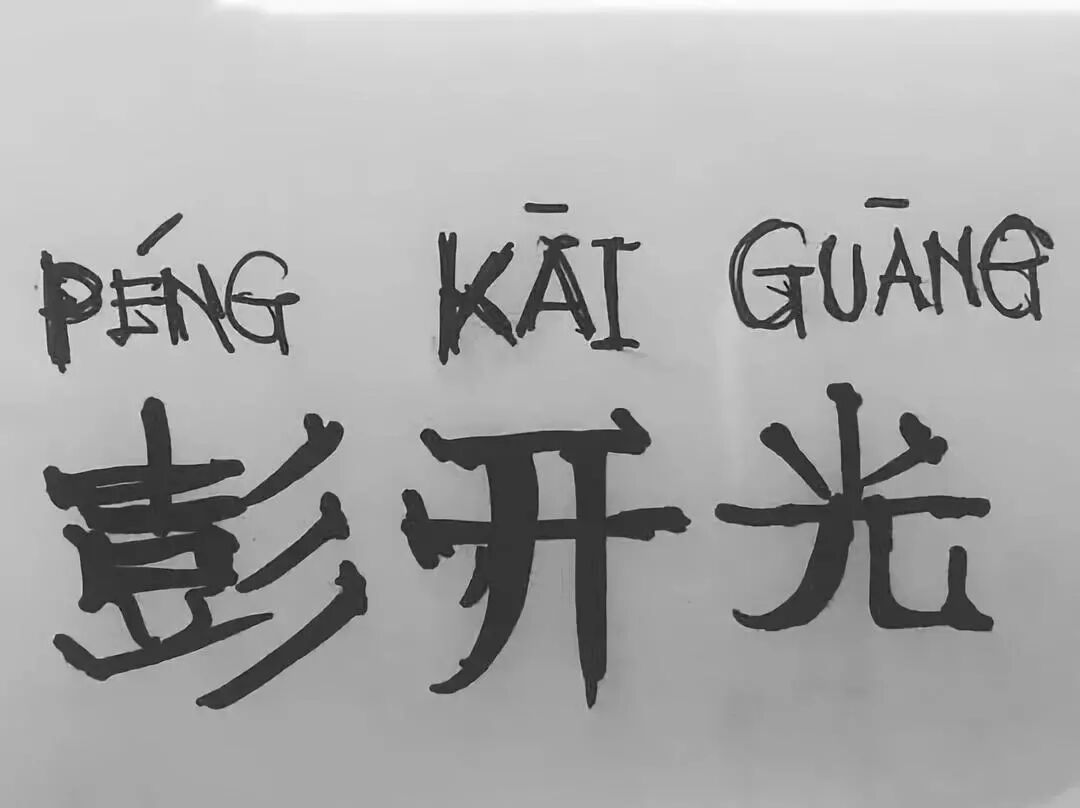 PÉNG KĀI GUĀNG
彭开光